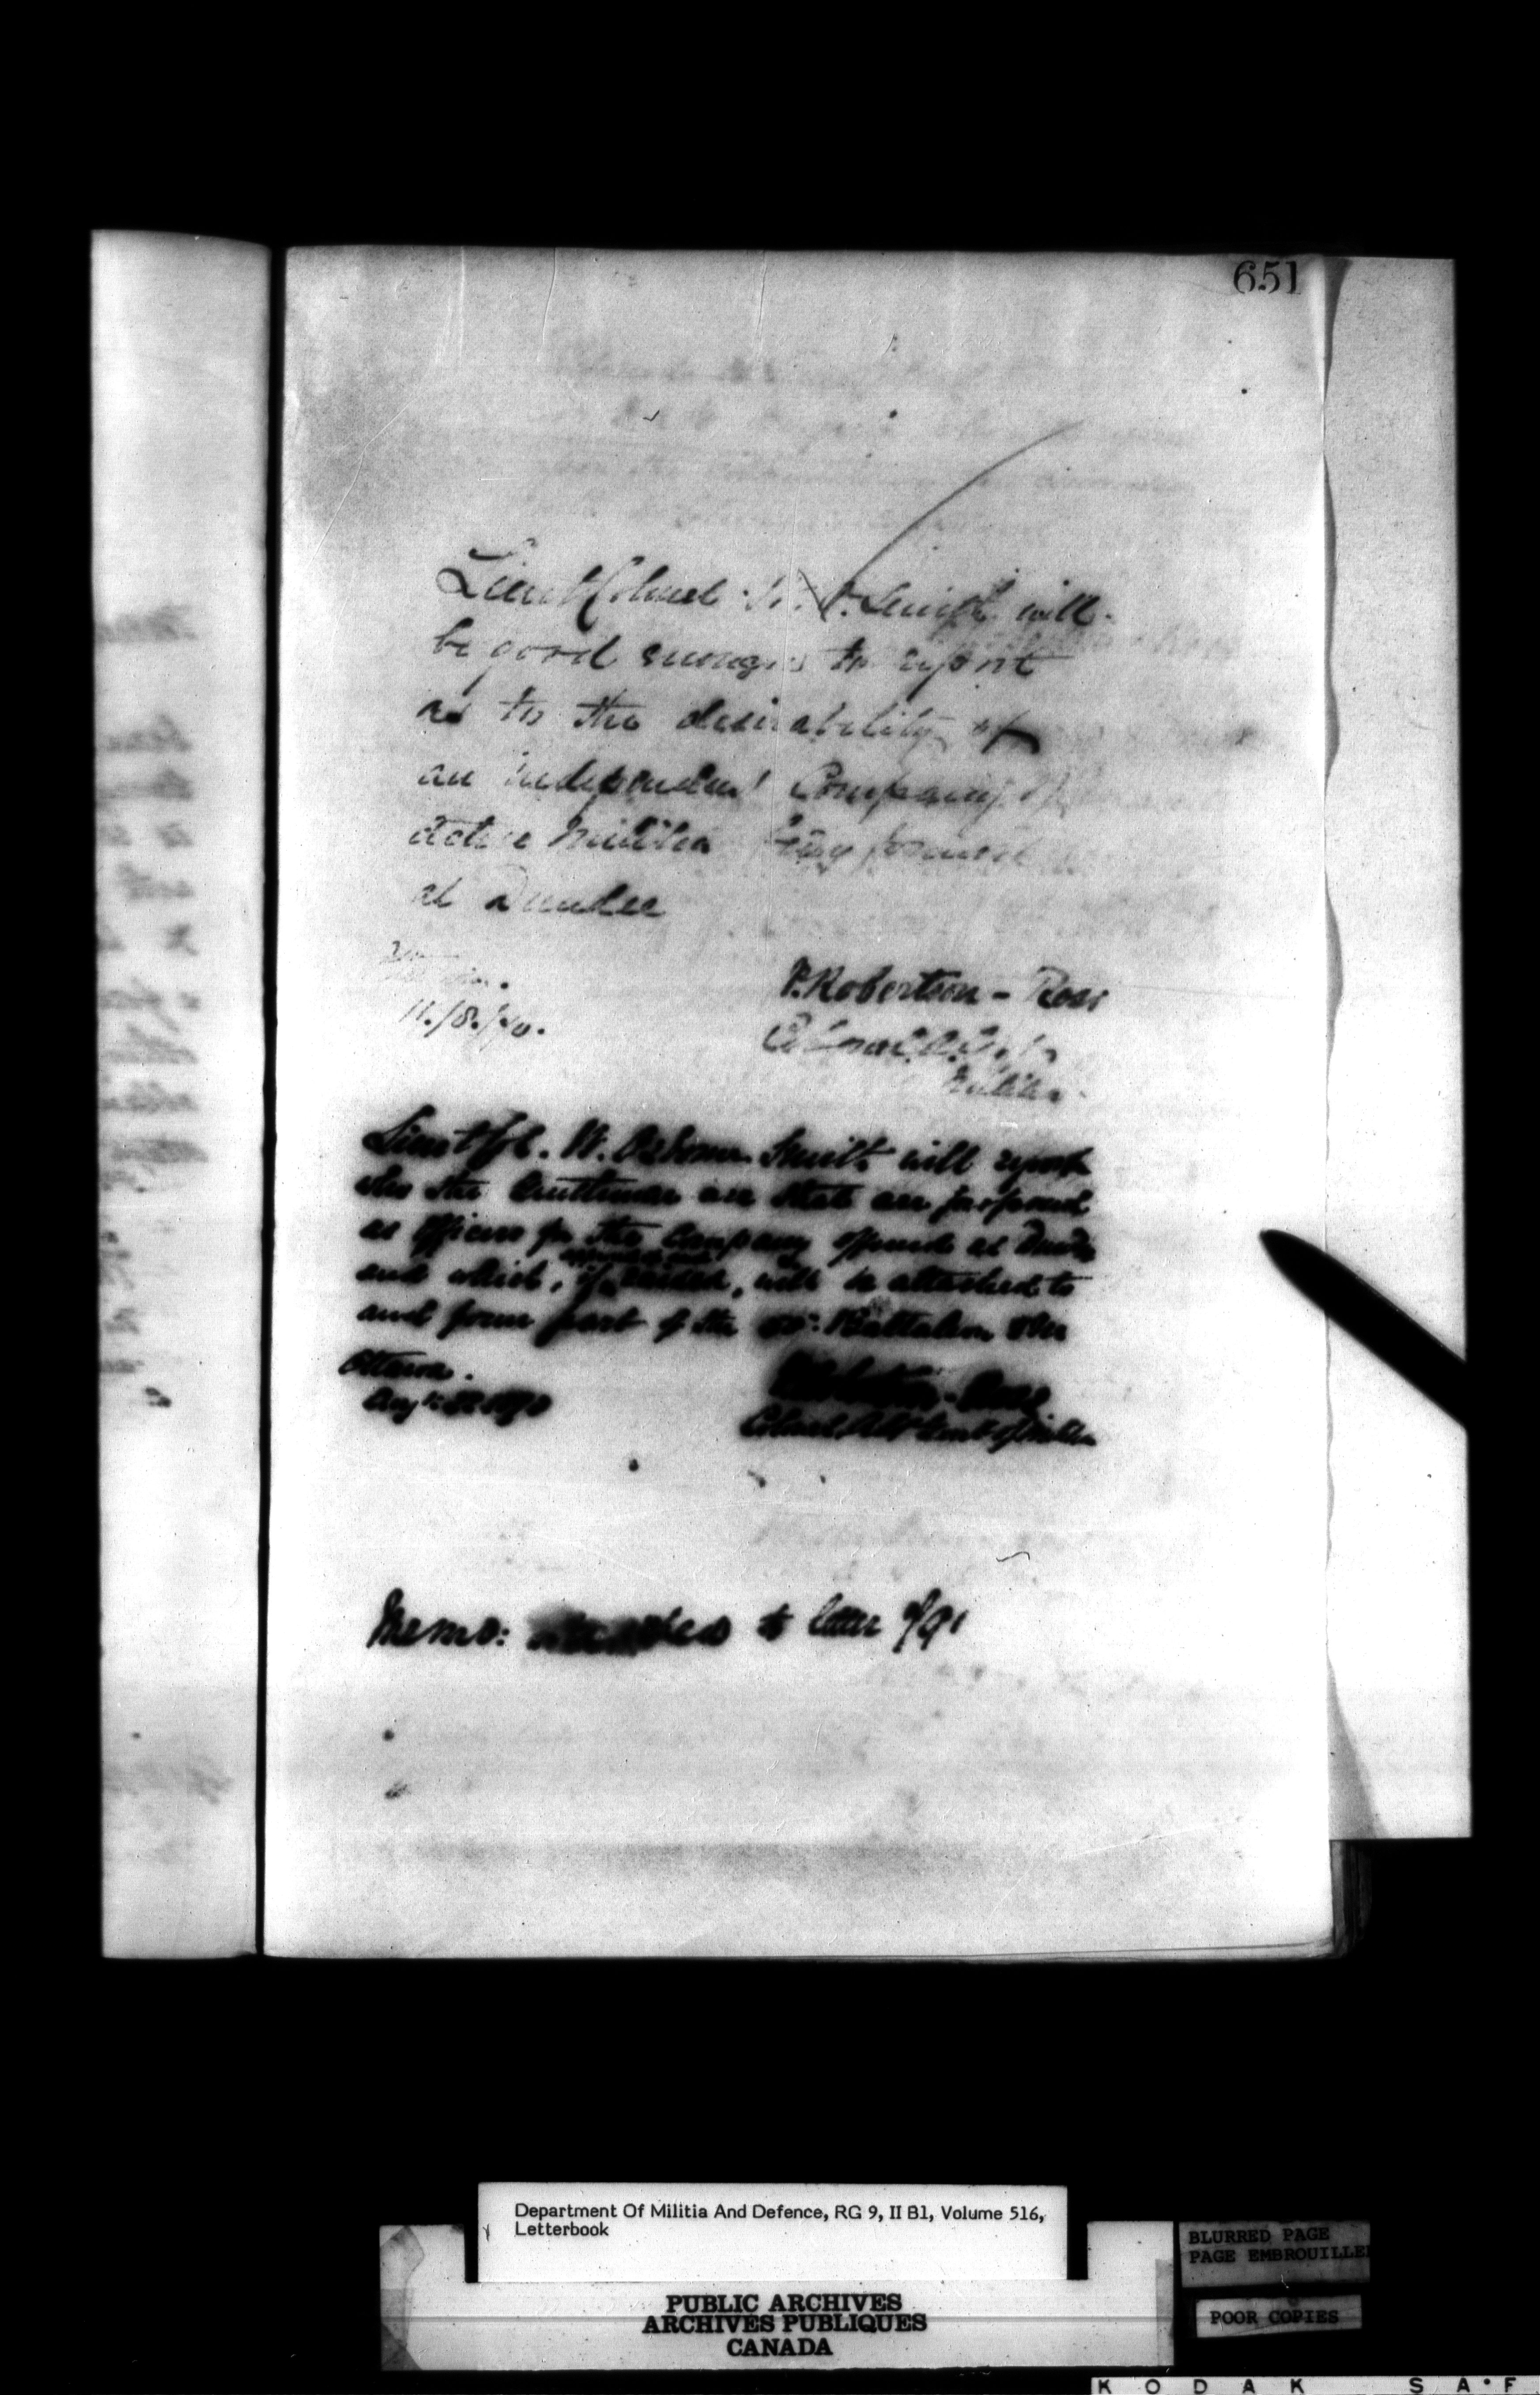 651
Lieut Colonel W. O. Smith will
be good enough to report
as to the desirability of
an independent Company of
Active Militia being formed
at Dundee
11./8./70.
P. Robertson - Ross
Colonel A.G. of
Militia
Lieut Col. W. Osborne Smith will report
who the Gentlemen are that are proposed
as officers for the Company offered at Dundee
and which, if raised, will be attached to
and form part of the 50th Battalion
Ottawa.
Augt 1870
P. Robertson - Ross
Colonel Adjt Genl of Militia
Memo: attached to letter
Department Of Militia And Defence, RG 9, II B1, Volume 516,
Letterbook
PUBLIC ARCHIVES
ARCHIVES PUBLIQUES
CANADA
BLURRED PAGE
PAGE EMBROUILLE
POOR COPIES
KODAK SA•F